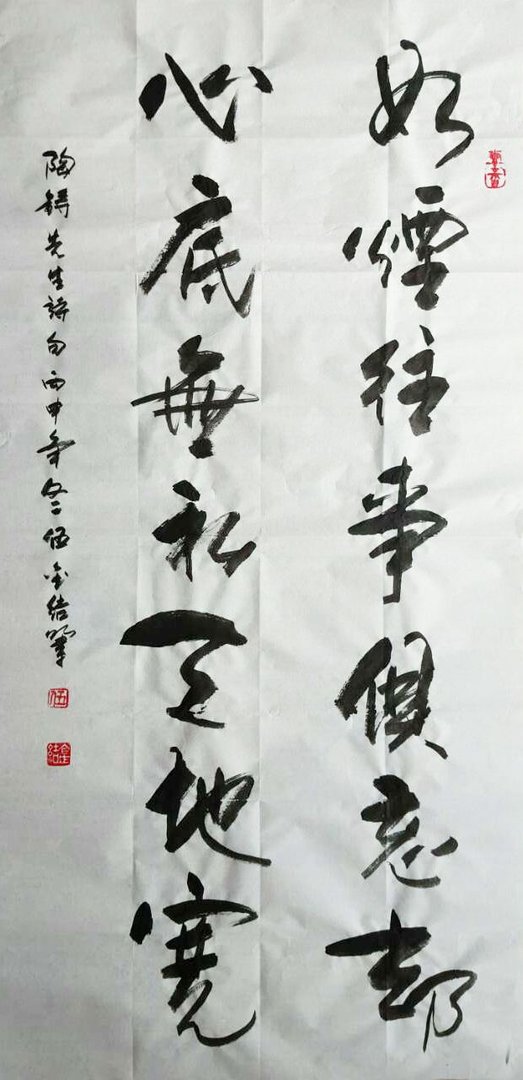 如煙往事俱忘却
心底無私天地寬
陶鑄先生詩句丙申年冬伍金結筆
伍